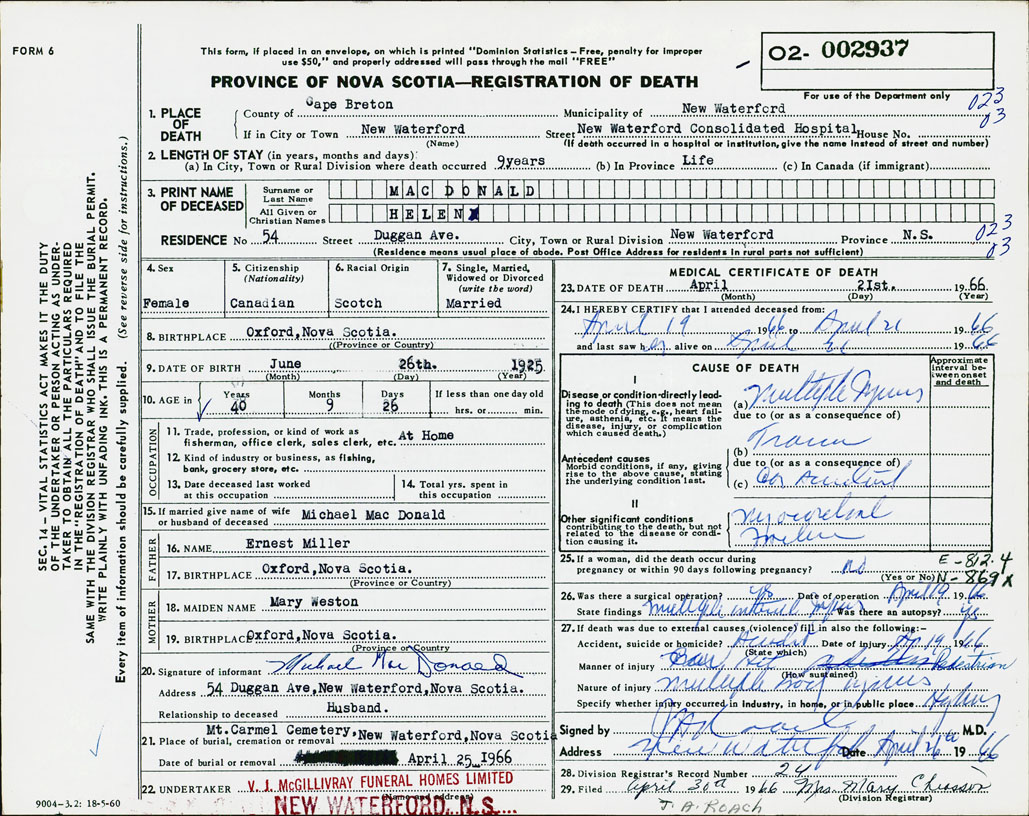 FORM 6
This form, if placed in an envelope, on which is printed "Dominion Statistics – Free, penalty for improper
use $50," and properly addressed will pass through the mail "FREE"
PROVINCE OF NOVA SCOTIA—REGISTRATION OF DEATH
O2- 002937
For use of the Department only
023
03
1. PLACE OF DEATH
County of Cape Breton Municipality of New Waterford
If in City or Town New Waterford Street New Waterford Consolidated Hospital House No.
(Name) (If death occurred in a hospital or institution, give the name instead of street and number)
2. LENGTH OF STAY (in years, months and days):
(a) In City, Town or Rural Division where death occurred 9years (b) In Province Life (c) In Canada (if immigrant)
3. PRINT NAME OF DECEASED
Surname or Last Name MAC DONALD
All Given or Christian Names HELEN
RESIDENCE No 54 Street Duggan Ave. City, Town or Rural Division New Waterford Province N.S.
023
03
(Residence means usual place of abode. Post Office Address for residents in rural parts not sufficient)
4. Sex
Female
5. Citizenship
(Nationality)
Canadian
6. Racial Origin
Scotch
7. Single, Married,
Widowed or Divorced
(write the word)
Married
8. BIRTHPLACE Oxford,Nova Scotia.
((Province or Country)
9. DATE OF BIRTH June 26th. 1925
(Month) (Day) (Year)
10. AGE in Years Months Days If less than one day old
40 9 26 hrs. or min.
OCCUPATION
11. Trade, profession, or kind of work as
fisherman, office clerk, sales clerk, etc. At Home
12. Kind of industry or business, as fishing,
bank, grocery store, etc.
13. Date deceased last worked
at this occupation
14. Total yrs. spent in
this occupation
15. If married give name of wife
or husband of deceased Michael Mac Donald
FATHER
16. NAME Ernest Miller
17. BIRTHPLACE Oxford,Nova Scotia.
(Province or Country)
MOTHER
18. MAIDEN NAME Mary Weston
19. BIRTHPLACE Oxford,Nova Scotia.
(Province or Country)
20. Signature of informant Michael Mac Donald
Address 54 Duggan Ave,New Waterford,Nova Scotia.
Relationship to deceased Husband.
21. Place of burial, cremation or removal Mt.Carmel Cemetery,New Waterford,Nova Scotia
Date of burial or removal April 25 1966
22. UNDERTAKER V. J. McGILLIVRAY FUNERAL HOMES LIMITED
NEW WATERFORD, N.S.
MEDICAL CERTIFICATE OF DEATH
23. DATE OF DEATH April 21st. 1966
(Month) (Day) (Year)
24. I HEREBY CERTIFY that I attended deceased from:
April 19 1966 to April 21 1966
and last saw her alive on April 21 1966
CAUSE OF DEATH
Approximate interval between onset and death
I
Disease or condition directly leading to death (This does not mean the mode of dying, e.g., heart failure, asthenia, etc. It means the disease, injury, or complication which caused death.)
(a) Multiple Injuries
due to (or as a consequence of)
Antecedent causes
Morbid conditions, if any, giving rise to the above cause, stating the underlying condition last.
(b)
due to (or as a consequence of)
(c) Car Accident
II
Other significant conditions
contributing to the death, but not related to the disease or condition causing it.
25. If a woman, did the death occur during
pregnancy or within 90 days following pregnancy? no
(Yes or No)
E-812.4
N-869X
26. Was there a surgical operation? Yes Date of operation April 19 1966
State findings multiple internal injuries Was there an autopsy? Yes
27. If death was due to external causes (violence) fill in also the following:–
Accident, suicide or homicide? Accident Date of injury Ap 19 1966
(State which)
Manner of injury Car Hit Pedestrian
(How sustained)
Nature of injury multiple body injuries
Specify whether injury occurred in industry, in home, or in public place Highway
Signed by M.D.
Address New Waterford Date April 26th 1966
28. Division Registrar's Record Number 24
29. Filed April 30th 1966 Mrs. Mary Chiasson
(Division Registrar)
J. A. ROACH
SEC. 14 – VITAL STATISTICS ACT MAKES IT THE DUTY
OF THE UNDERTAKER OR PERSON ACTING AS UNDER-
TAKER TO OBTAIN ALL THE PARTICULARS REQUIRED
IN THE "REGISTRATION OF DEATH" AND TO FILE THE
SAME WITH THE DIVISION REGISTRAR WHO SHALL ISSUE THE BURIAL PERMIT.
WRITE PLAINLY WITH UNFADING INK. THIS IS A PERMANENT RECORD.
Every item of information should be carefully supplied. (See reverse side for instructions.)
9004-3.2: 18-5-60